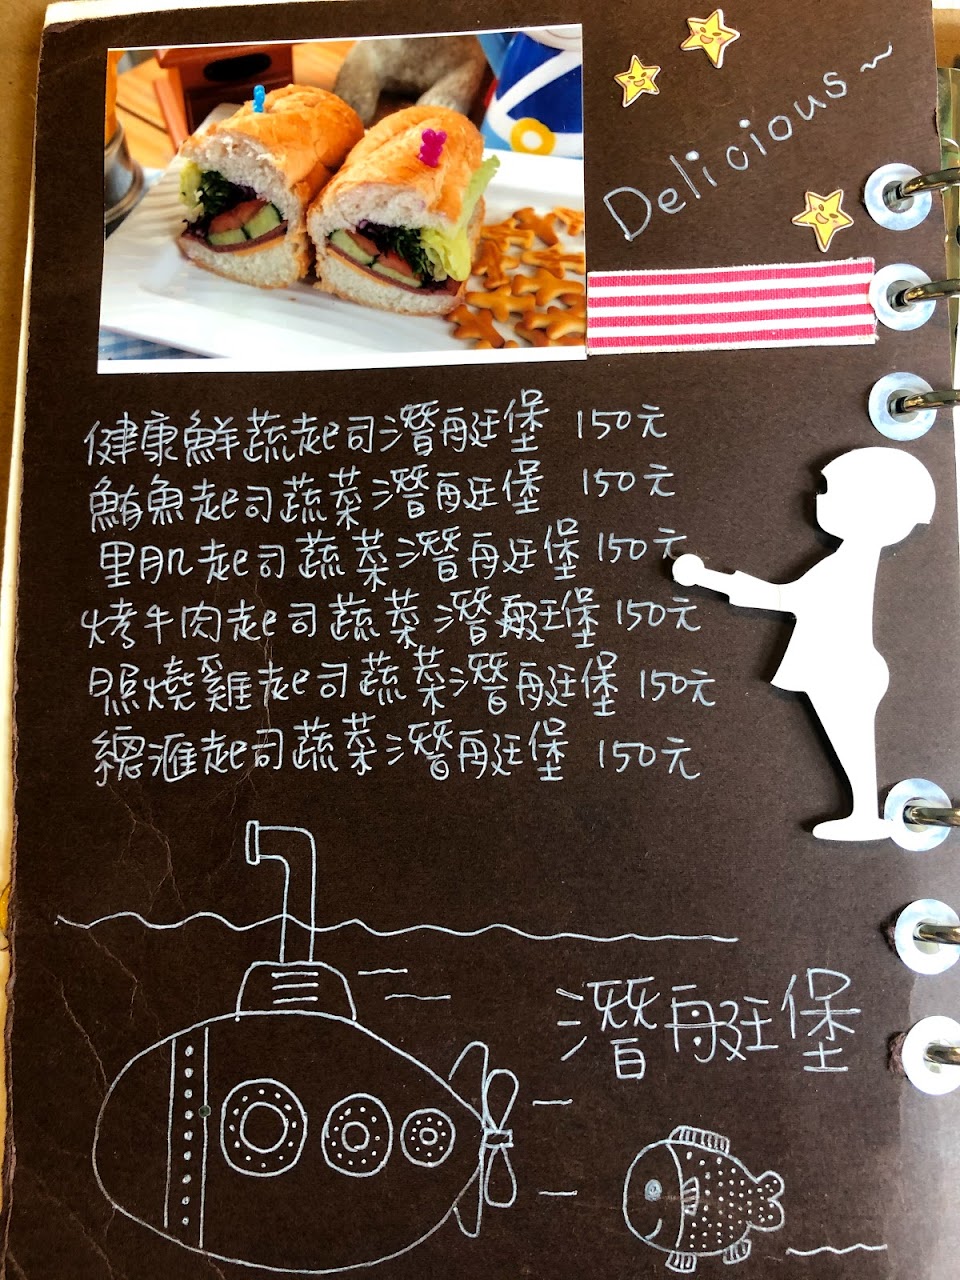 Delicious~
健康鮮蔬起司潛艇堡 150元
鮪魚起司蔬菜潛艇堡 150元
里肌起司蔬菜潛艇堡 150元
烤牛肉起司蔬菜潛艇堡 150元
照燒雞起司蔬菜潛艇堡 150元
總滙起司蔬菜潛艇堡 150元
潛艇堡